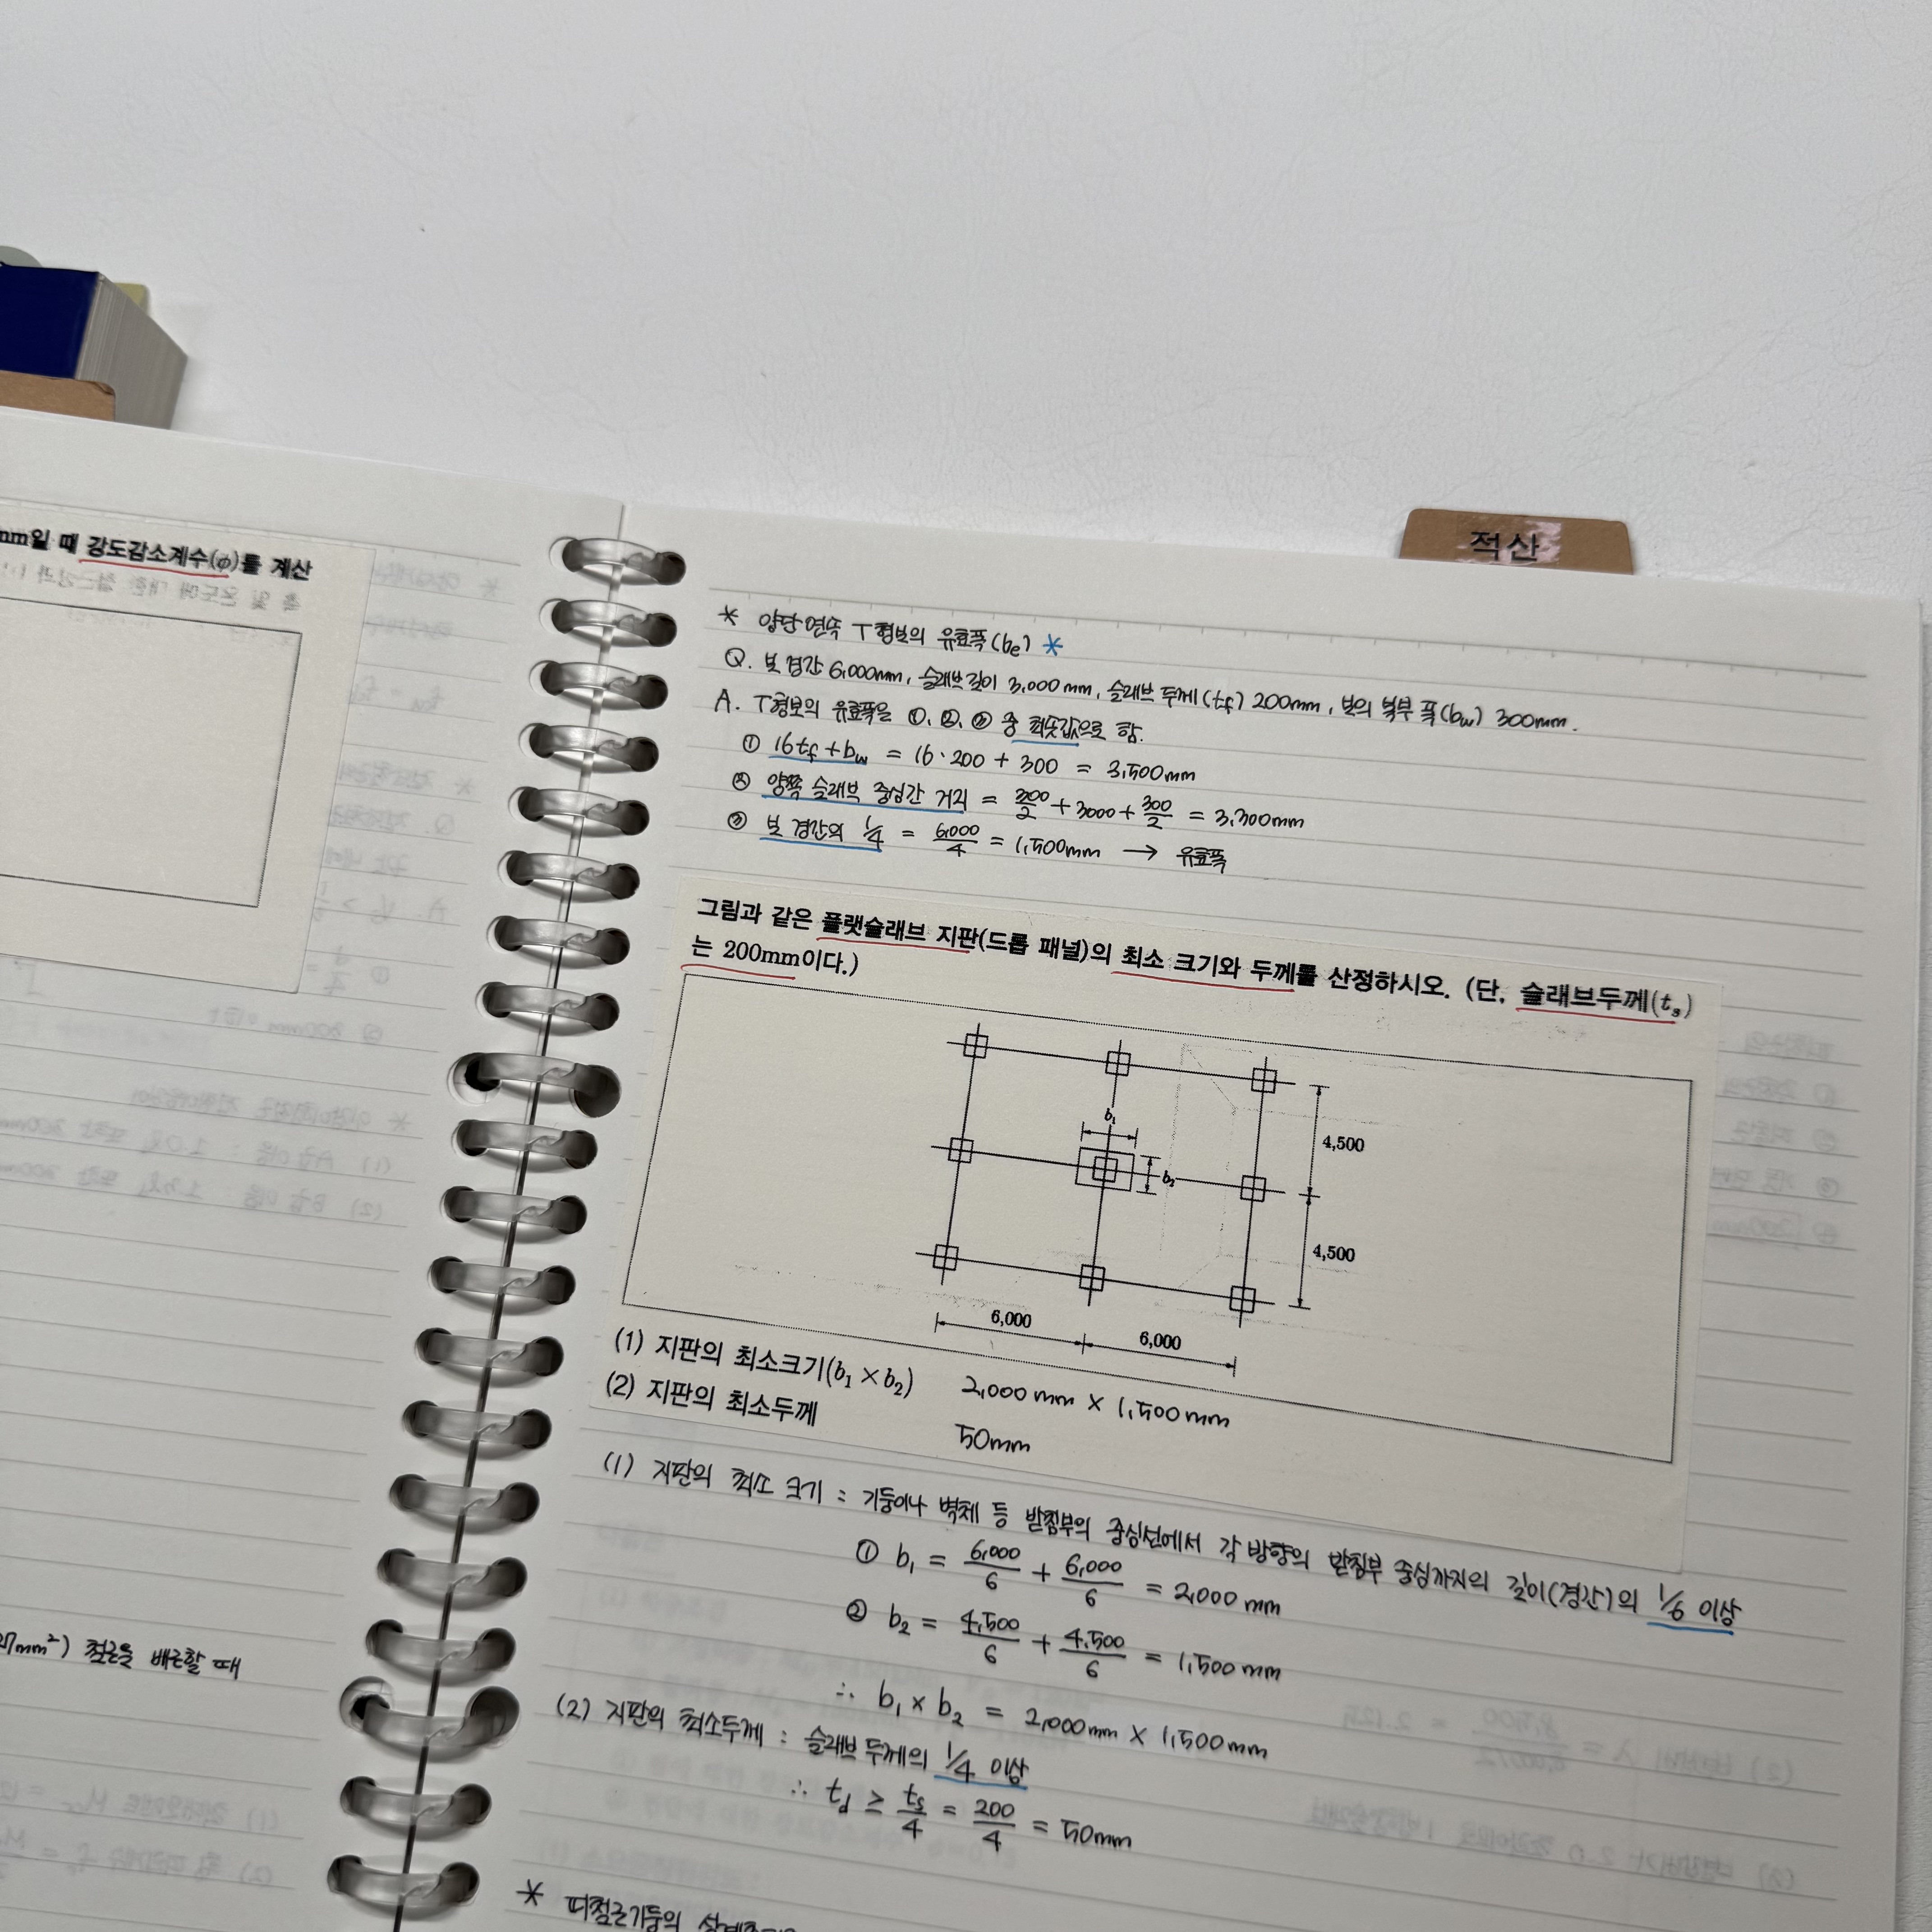 mm일 때 강도감소계수(φ)를 계산
27mm²) 철근을 배근할 때
적산
* 양단연속 T형보의 유효폭(be) *
Q. 보 경간 6,000mm, 슬래브길이 3,000mm, 슬래브 두께(tf) 200mm, 보의 복부 폭(bw) 300mm.
A. T형보의 유효폭은 ①, ②, ③ 중 최솟값으로 함.
① 16tf + bw = 16 · 200 + 300 = 3,500mm
② 양쪽 슬래브 중심간 거리 = 300/2 + 3000 + 300/2 = 3,300mm
③ 보 경간의 1/4 = 6,000/4 = 1,500mm → 유효폭
그림과 같은 플랫슬래브 지판(드롭 패널)의 최소 크기와 두께를 산정하시오. (단, 슬래브두께(ts)
는 200mm이다.)
b₁
4,500
b₂
4,500
6,000
6,000
(1) 지판의 최소크기(b₁ × b₂) 2,000mm × 1,500mm
(2) 지판의 최소두께 50mm
(1) 지판의 최소 크기 : 기둥이나 벽체 등 받침부의 중심선에서 각 방향의 받침부 중심까지의 길이(경간)의 1/6 이상
① b₁ = 6,000/6 + 6,000/6 = 2,000mm
② b₂ = 4,500/6 + 4,500/6 = 1,500mm
∴ b₁ × b₂ = 2,000mm × 1,500mm
(2) 지판의 최소두께 : 슬래브 두께의 1/4 이상
∴ td ≥ ts/4 = 200/4 = 50mm
* 띠철근기둥의